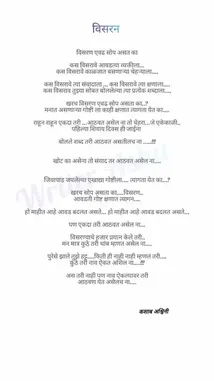 विसरन
विसरण एवढ सोप असत का
कस विसरावे आवडत्या व्यक्तीला...
कस विसरावे काळजात बसणाऱ्या चेहऱ्याला....
कस विसरावे त्या संवादाला ... कस विसरावे त्या क्षणाला....
कस विसराव तुझ्या सोबत बोललेल्या त्या प्रत्येक शब्दाला....
खरच विसरण एवढ सोप असता का..?
मनात असणाऱ्या गोष्टी ला काही क्षणात त्यागता येत का....?
राहून राहून एकदा तरी ... आठवत असेल ना तो चेहरा...जे एकेकाळी..
पहिल्या शिवाय दिवस ही जाईना
बोलते शब्द तरी ... आठवत असतीलच ना .....!!!
खोट का असेना तो संवाद तर आठवत असेल ना....
जिवापाड जपलेल्या एखाद्या गोष्टीला..... त्यागता येत का....?
खरच सोप असता का....विसरण..
आवडती गोष्ट क्षणात त्यागन....
हो माहीत आहे आवड बदलत असते... हो माहीत आहे आवड बदलत असते...
पण एकदा तरी आठवत असेल ना...
विसरण्याचे हजार प्रयत्न केले तरी..
मन मात्र कुठे तरी थांब म्हणत असेल ना....
पुरेसे झाले तुझे हट्ट....किती ही नाही नाही म्हणत असले तरी.....
कुठे तरी नाव ऐकत असेल ना.....!!!
अस तरी नाही पण नाव ऐकल्यावर तरी
आठवण येत असेलच ना....